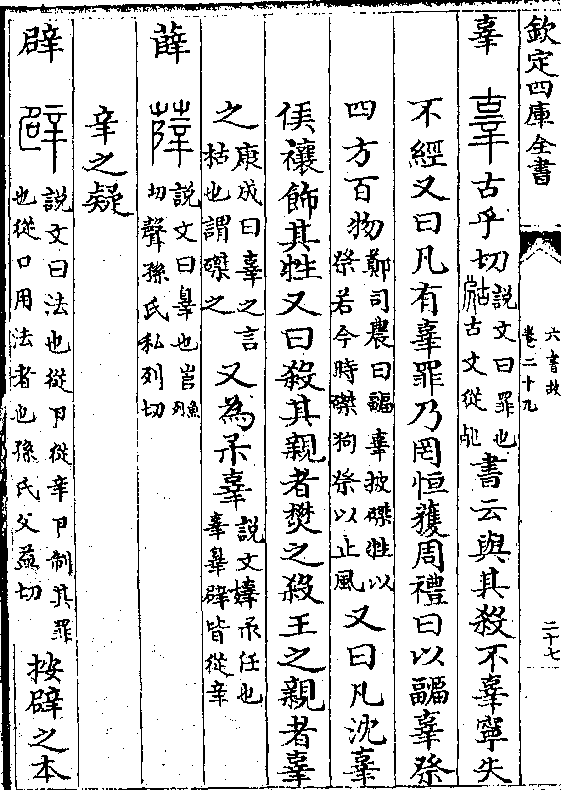 欽定四庫全書
六書故
卷二十九
二十七
辜 古乎切說文曰罪也古文從歺書云與其殺不辜寧失
不經又曰凡有辜罪乃罔恒獲周禮曰以疈辜祭
四方百物鄭司農曰疈辜披磔牲以祭若今時磔狗祭以止風又曰凡沈辜
侯禳飾其牲又曰殺其親者焚之殺王之親者辜
之康成曰辜之言枯也謂磔之又為呆辜說文嫴呆任也辜辠辟皆從辛
薛 說文曰辠也魚列切聲孫氏私列切
辛之疑
辟 說文曰法也從卪從辛卪制其罪也從口用法者也孫氏父益切按辟之本